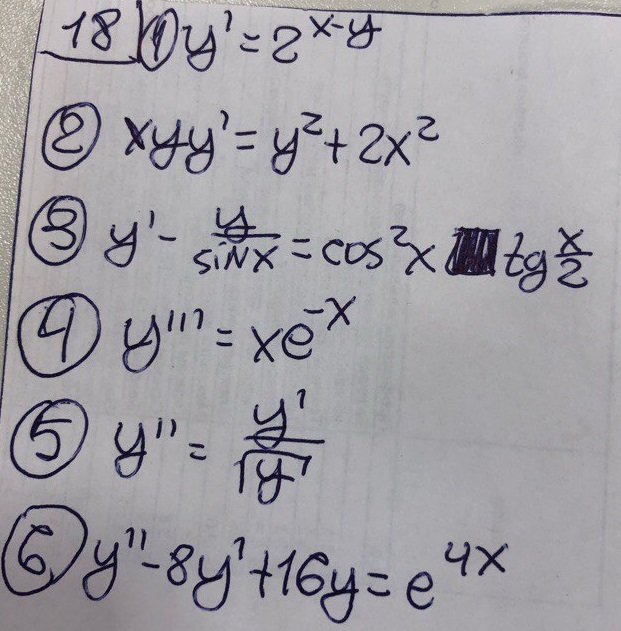 18 ① y' = 2^{x-y}
② xyy' = y² + 2x²
③ y' - \frac{y}{sin x} = cos²x tg \frac{x}{2}
④ y''' = xe^{-x}
⑤ y'' = \frac{y'}{\sqrt{y}}
⑥ y'' - 8y' + 16y = e^{4x}